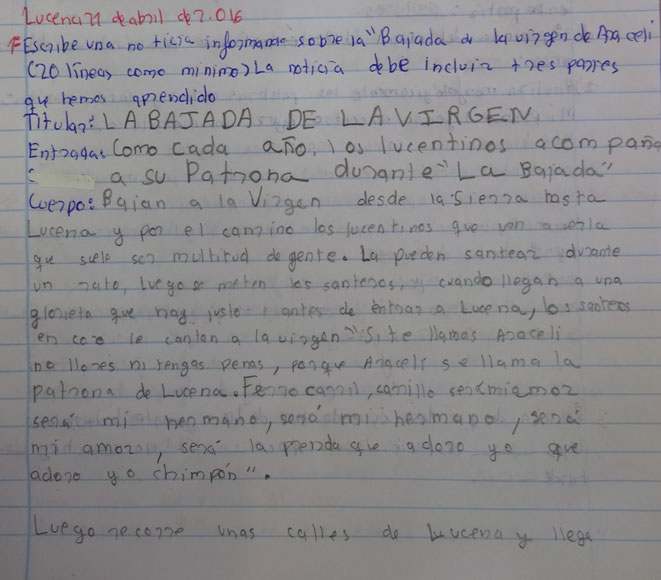 Lucena 21 de abril de 2.016
Escribe una noticia informando sobre la "Bajada de la virgen de Araceli
(20 líneas como mínimo) La noticia debe incluir tres partes
que hemos aprendido
Titular: LA BAJADA DE LA VIRGEN.
Entrada: Como cada año, los lucentinos acompaña
a su Patrona durante "La Bajada"
Cuerpo: Bajan a la Virgen desde la Sierra hasta
Lucena y por el camino los lucentinos que van a verla
que suele ser multitud de gente. La pueden santear durante
un rato, luego se meten los santeros, cuando llegan a una
glorieta que hay justo antes de entrar a Lucena, los santeros
en coro le cantan a la virgen "Si te llamas Araceli
no llores ni tengas penas, porque Araceli se llama la
patrona de Lucena. Ferro carril, camillo será mi amor
será mi hermano, será mi hermano, será
mi amor, será la prenda que adoro yo que
adoro yo chimpón".
Luego recorre unas calles de Lucena y llega